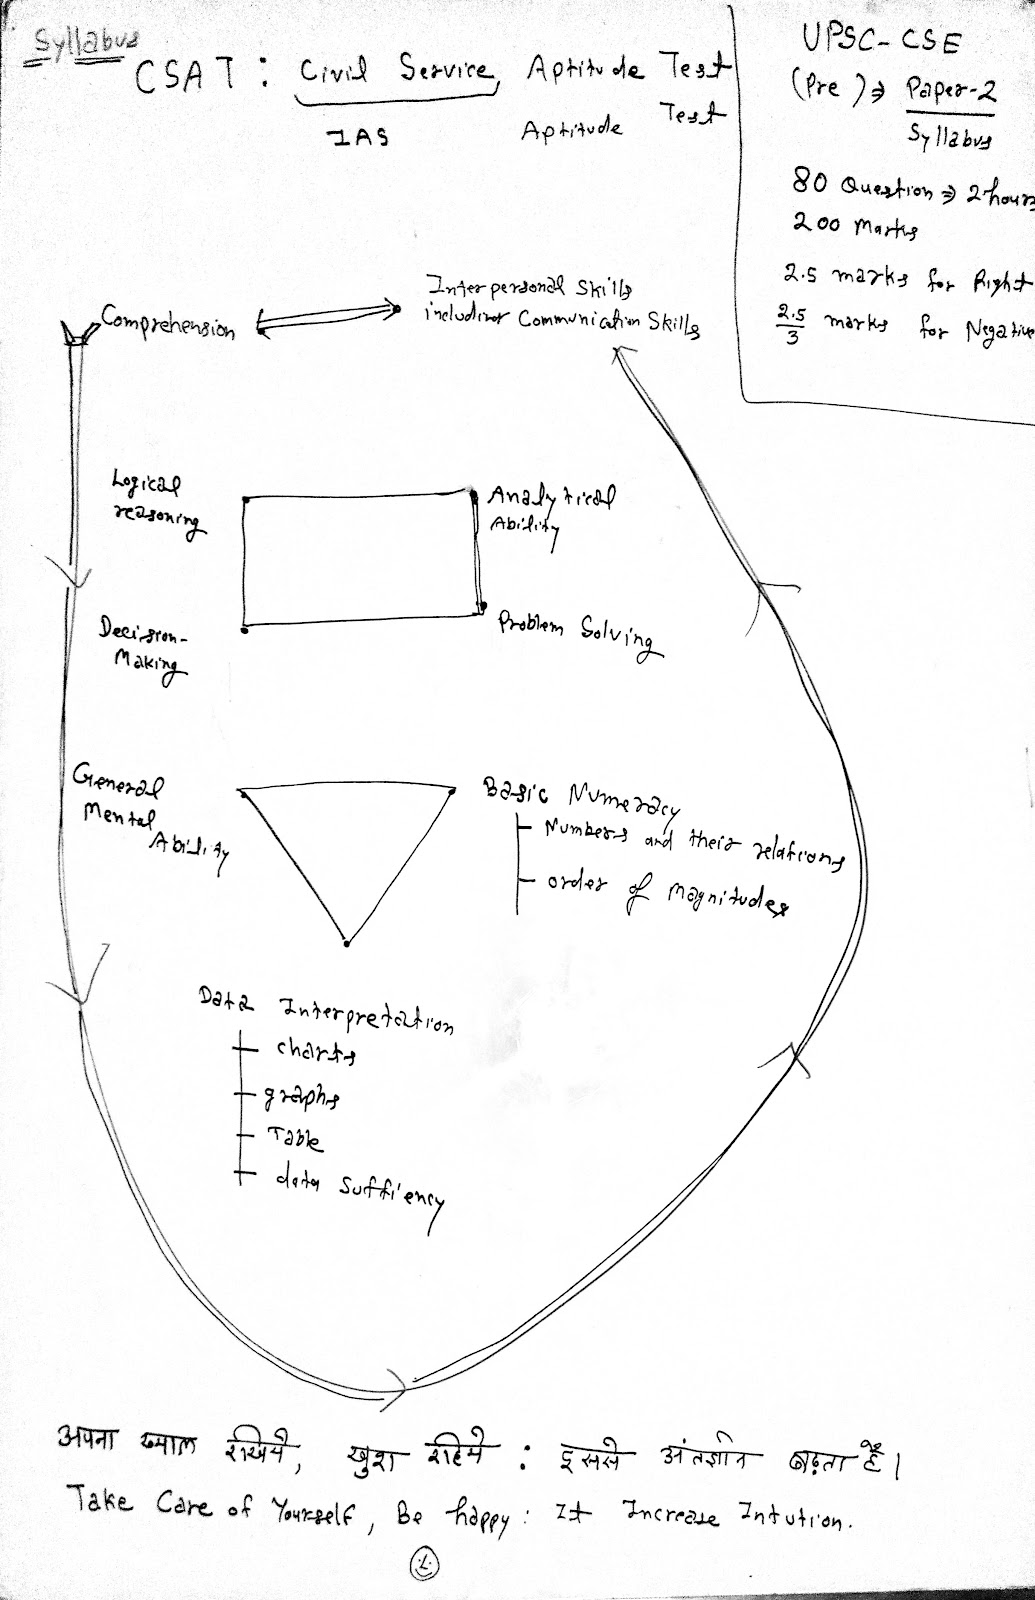 Syllabus
CSAT : Civil Service Aptitude Test
IAS Aptitude Test
UPSC-CSE
(Pre) ⇒ Paper-2
Syllabus
80 Question ⇒ 2 hours
200 Marks
2.5 marks for Right
2.5/3 marks for Negative
Comprehension
Interpersonal Skills
including Communication Skills
Logical
reasoning
Analytical
Ability
Decision-
Making
Problem Solving
General
Mental
Ability
Basic Numeracy
Numbers and their relations
order of Magnitudes
Data Interpretation
charts
graphs
Table
data suffiency
अपना ख्याल रखिये, खुश रहिये : इससे अंतर्ज्ञान बढ़ता है।
Take Care of Yourself, Be happy : It Increase Intution.